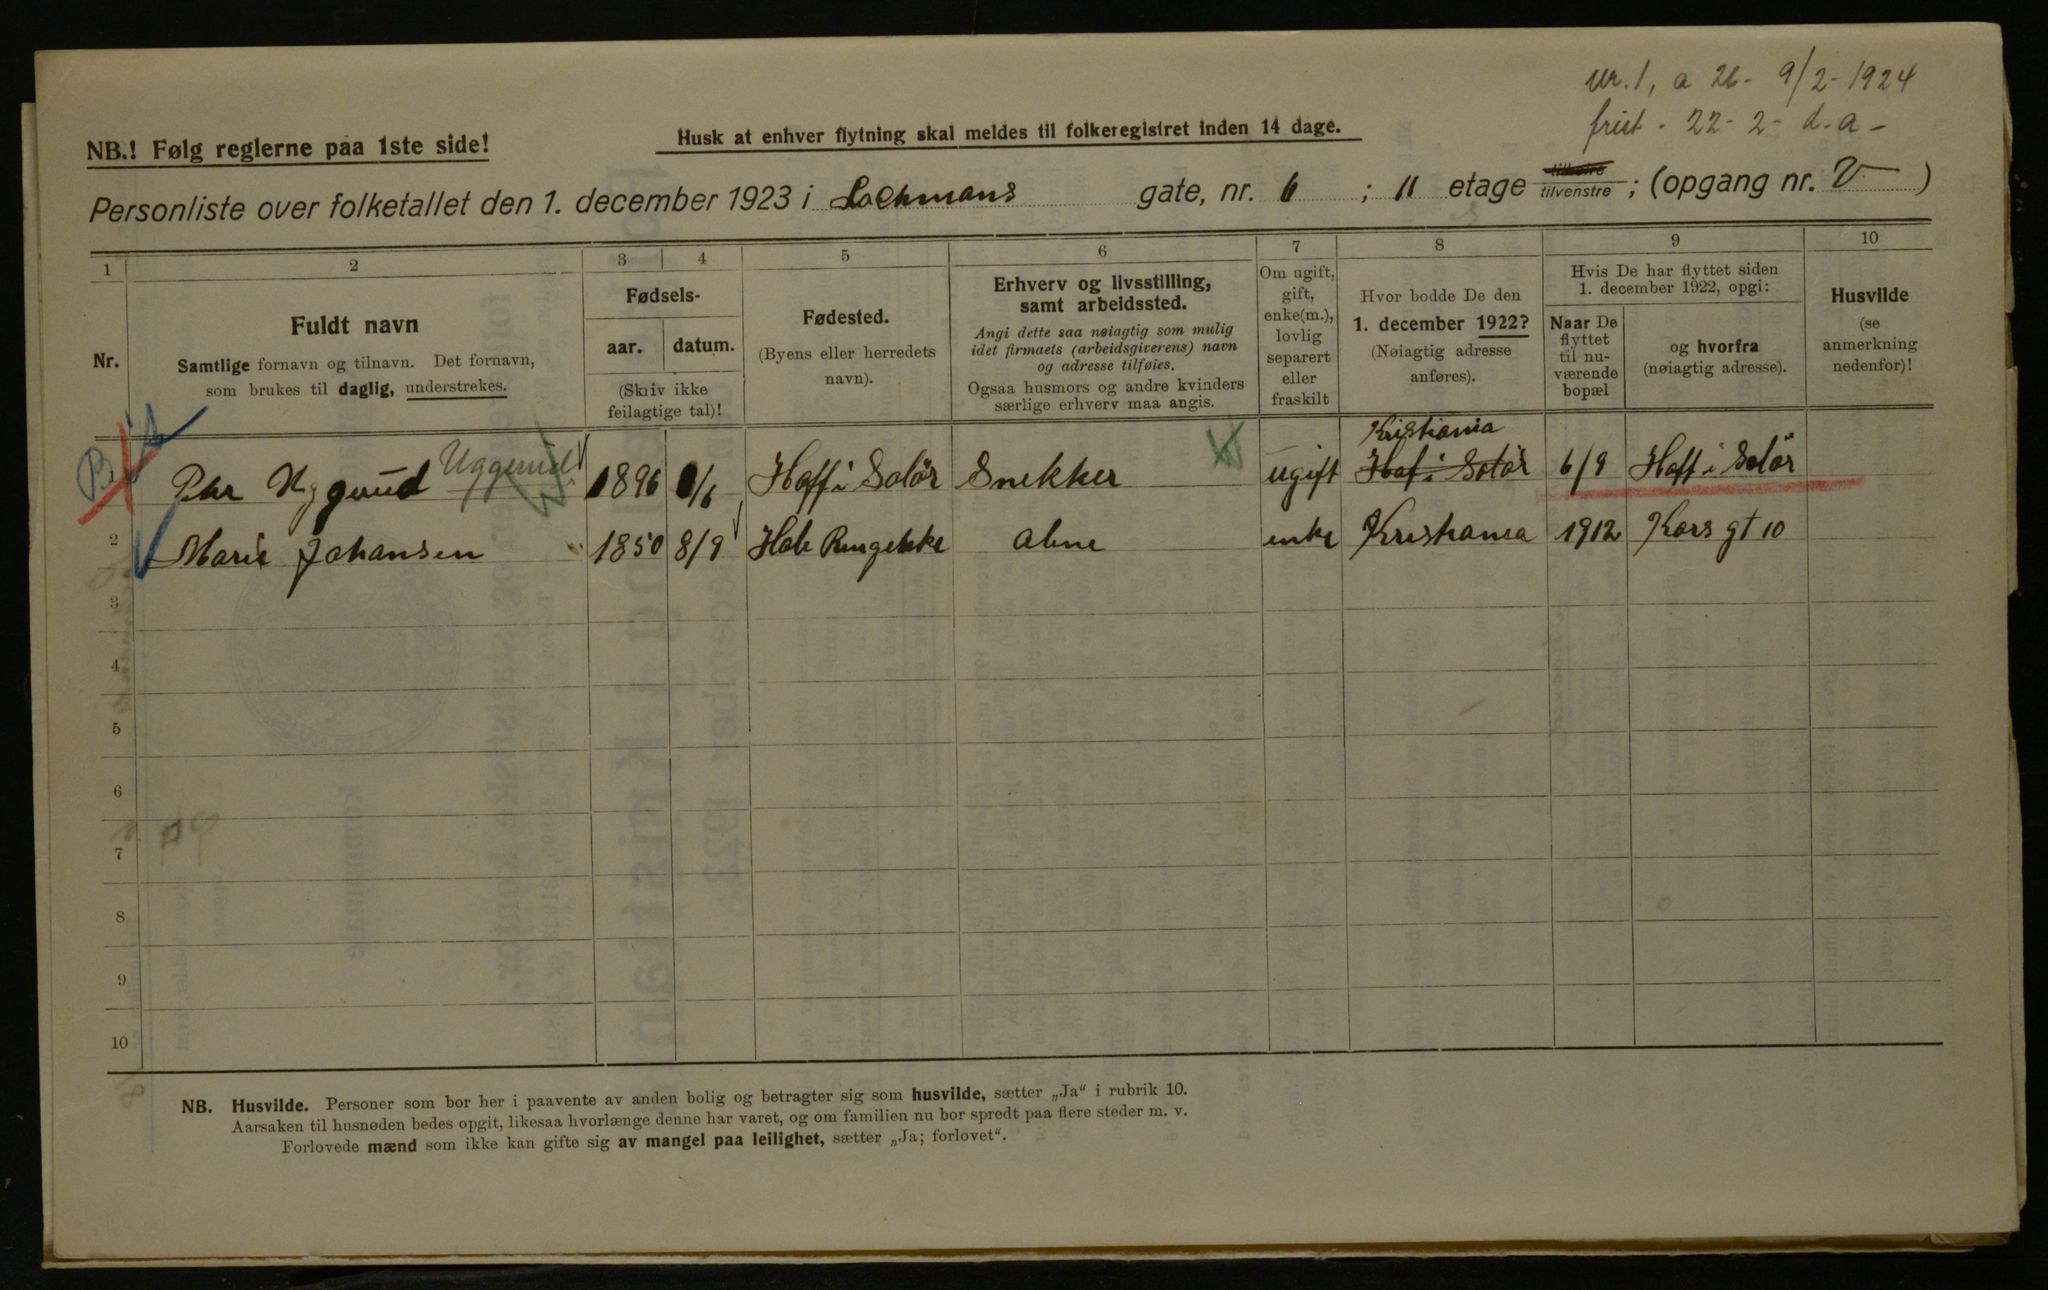 Nr. 1, a 26 - 9/2 - 1924
frist - 22 - 2 - d. a -
NB.! Følg reglerne paa 1ste side!
Husk at enhver flytning skal meldes til folkeregistret inden 14 dage.
Personliste over folketallet den 1. december 1923 i Lochmans gate, nr. 6 ; 11 etage tilhøire tilvenstre ; (opgang nr. V )
1 2 3 4 5 6 7 8 9 10
Nr.
Fuldt navn
Samtlige fornavn og tilnavn. Det fornavn,
som brukes til daglig, understrekes.
Fødsels-
aar. datum.
(Skriv ikke
feilagtige tal)!
Fødested.
(Byens eller herredets
navn).
Erhverv og livsstilling,
samt arbeidssted.
Angi dette saa nøiagtig som mulig
idet firmaets (arbeidsgiverens) navn
og adresse tilføies.
Ogsaa husmors og andre kvinders
særlige erhverv maa angis.
Om ugift,
gift,
enke(m.),
lovlig
separert
eller
fraskilt
Hvor bodde De den
1. december 1922?
(Nøiagtig adresse
anføres).
Hvis De har flyttet siden
1. december 1922, opgi:
Naar De
flyttet
til nu-
værende
bopæl
og hvorfra
(nøiagtig adresse).
Husvilde
(se
anmerkning
nedenfor)!
Kristiania
Uggerud 1896 /6 Hoff i Solör Snekker ugift Hof i Solör 6/9 Hoff i Solör
2 Marie Johansen 1850 8/9 Hole alene enke Kristiania 1912 Kors gt 10
3
4
5
6
7
8
9
10
NB. Husvilde. Personer som bor her i paavente av anden bolig og betragter sig som husvilde, sætter „Ja“ i rubrik 10.
Aarsaken til husnøden bedes opgit, likesaa hvorlænge denne har varet, og om familien nu bor spredt paa flere steder m. v.
Forlovede mænd som ikke kan gifte sig av mangel paa leilighet, sætter „Ja; forlovet“.